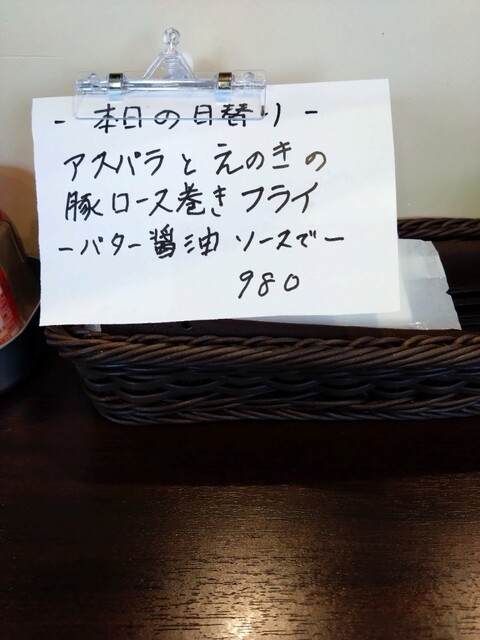 - 本日の日替り -
アスパラとえのきの
豚ロース巻きフライ
-バター醤油ソースで-
980